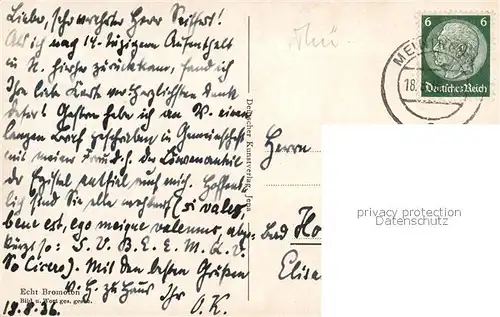 Lieber, sehr verehrter Herr Seiffert!
Als ich nach 14-tägigem Aufenthalt
in N. hierher zurückkam, fand ich
Ihre liebe Karte vor. Herzlichsten Dank
dafür! Gestern habe ich an W. einen
langen Brief geschrieben in Gemeinschaft
mit meiner d. h. der Löwenanteil
der Epistel entfiel auf mich. Hoffent-
lich sind Sie alle wohlauf (si vales,
bene est, ego meique valemus, abge-
kürzt so: S. V. B. E. E. M. Q. V.
So Cicero). Mit den besten Grüßen
v. H. zu Haus Ihr O. K.
Echt Bromoton
Bild u. Wort ges. gesch.
19.8.36.
Deutscher Kunstverlag, Jena
MEIN
18.
6 6
Deutsches Reich
Herrn
Bad Ho
Elisa
privacy protection
Datenschutz